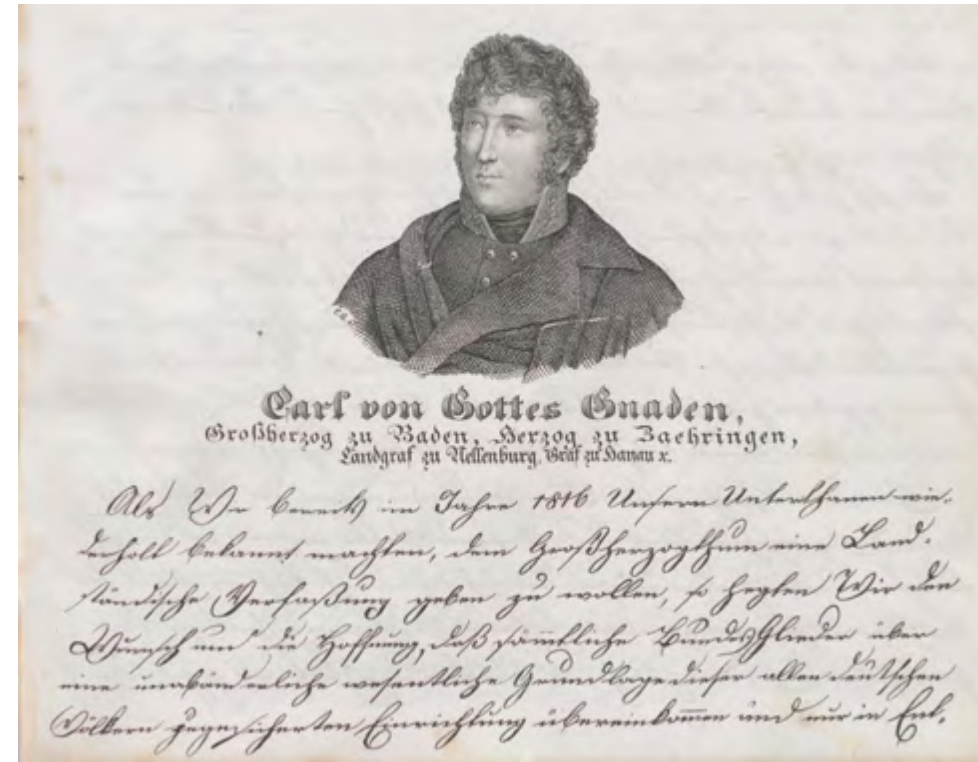 Carl von Gottes Gnaden,
Großherzog zu Baden, Herzog zu Zaehringen,
Landgraf zu Nellenburg, Graf zu Hanau x.
Als Wir bereits im Jahre 1816 Unsern Unterthanen wie-
derholt bekannt machten, dem Großherzogthum eine Land-
ständische Verfaßung geben zu wollen, so hegten Wir den
Wunsch und die Hoffnung, daß sämmtliche BundesGlieder über
eine unabänderliche wesentliche Grundlage dieser allen deutschen
Völkern zugesicherten Einrichtung übereinkommen und nur in Ent-